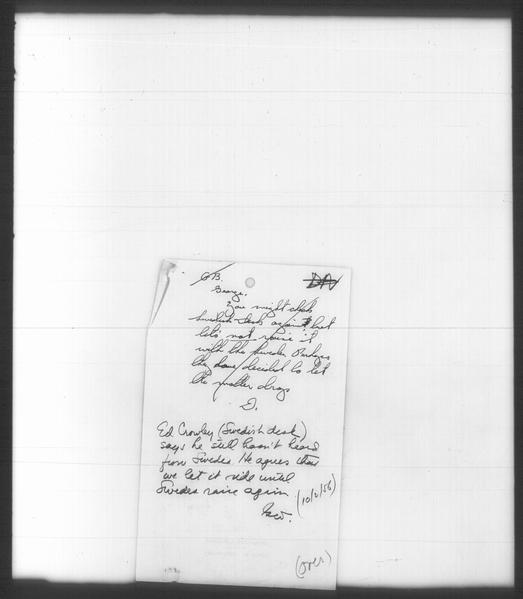 GB.
George,
You might check
Swedish desk again but
let's not raise it
with the Swedes. Perhaps
they have decided to let
the matter drop
D.
Ed Crowley (Swedish desk)
says he still hasn't heard
from Swedes. He agrees that
we let it ride until
Swedes raise again
(10/2/56)
Geo.
(over)